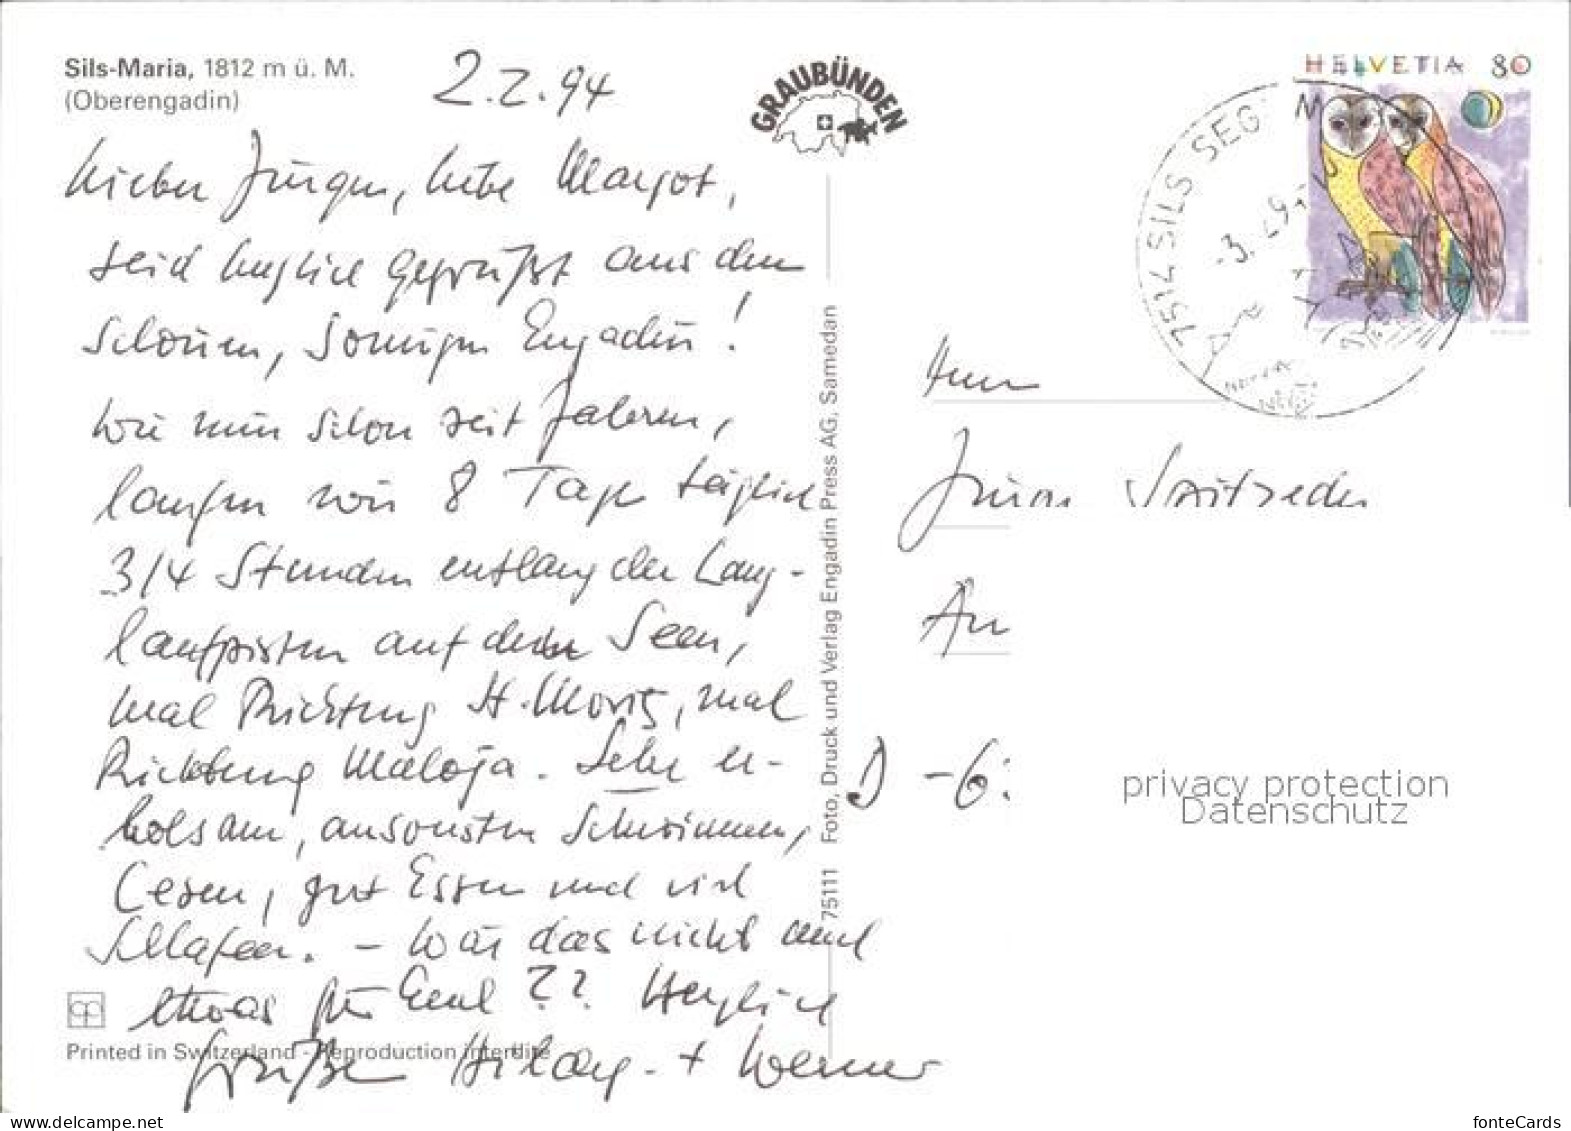 Sils-Maria, 1812 m ü. M.
(Oberengadin)
2.2.94
GRAUBÜNDEN
HELVETIA 80
7514 SILS SEGL
Lieber Jürgen, liebe Margot,
seid herzlich gegrüßt aus dem
schönen, sonnigen Engadin!
Wie nun schon seit Jahren,
laufen wir 8 Tage täglich
3/4 Stunden entlang der Lang-
laufpisten auf den Seen,
mal Richtung St. Moritz, mal
Richtung Maloja. Sehr er-
holsam, ansonsten Schwimmen,
Lesen, gut Essen und viel
Schlafen. – Wär das nicht auch
etwas für Euch?? Herzliche
Grüße + Werner
Printed in Switzerland - Reproduction interdite
75111 Foto, Druck und Verlag Engadin Press AG, Samedan
Herrn
An
D -6
privacy protection
Datenschutz
www.delcampe.net
fonteCards